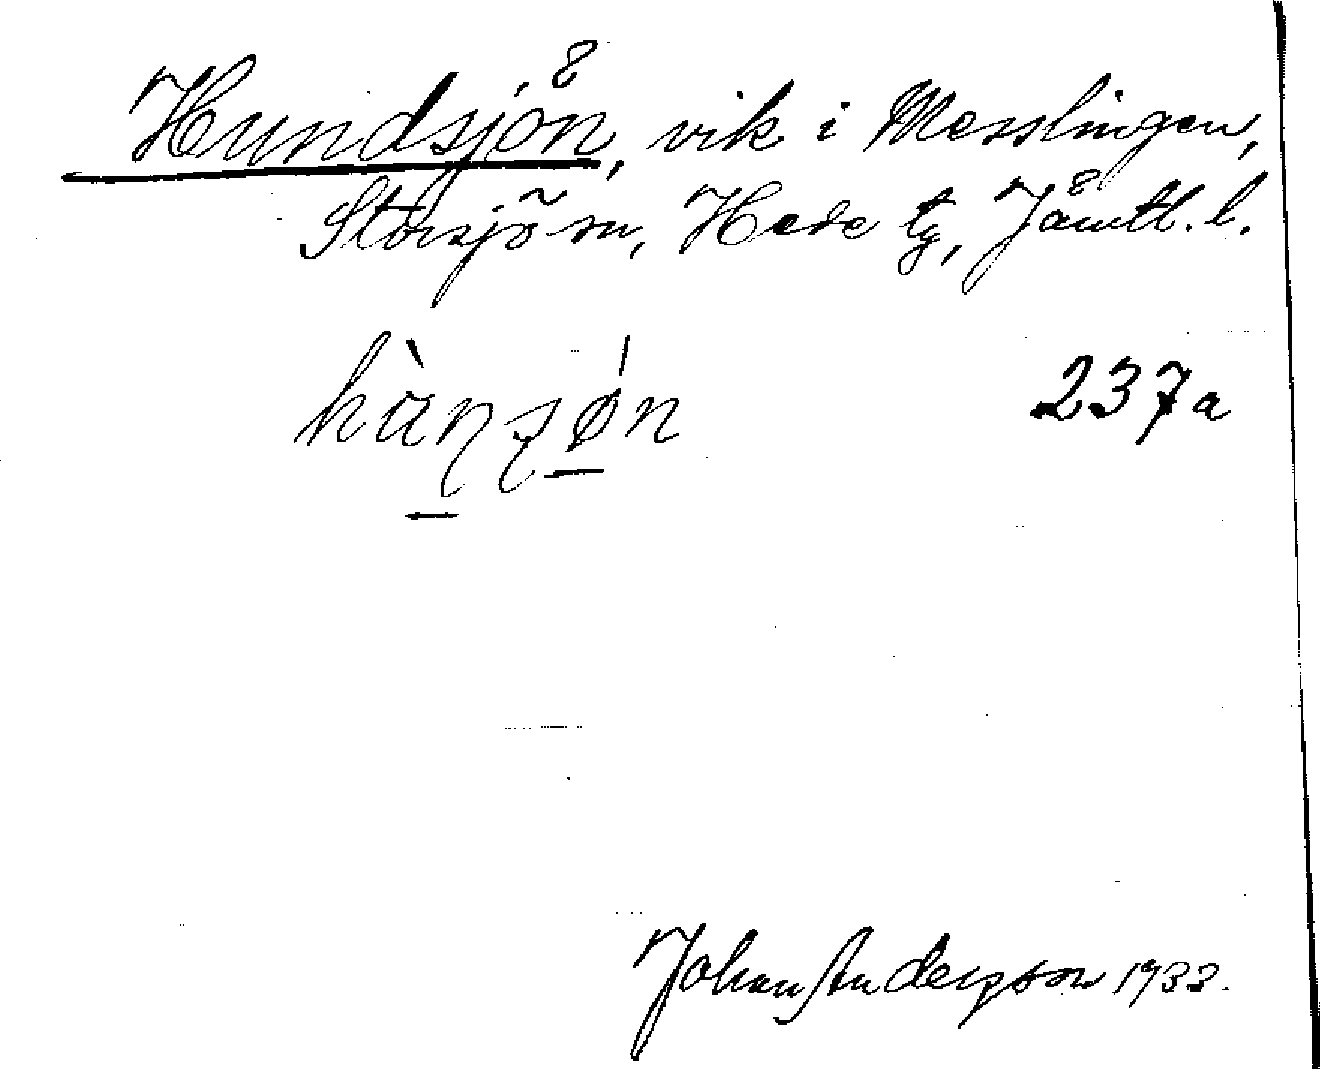 Hundsjön, vik i Messlingen,
Storsjö sn, Hede tg, Jämtl. l.
237a
Johan Andersson 1933.